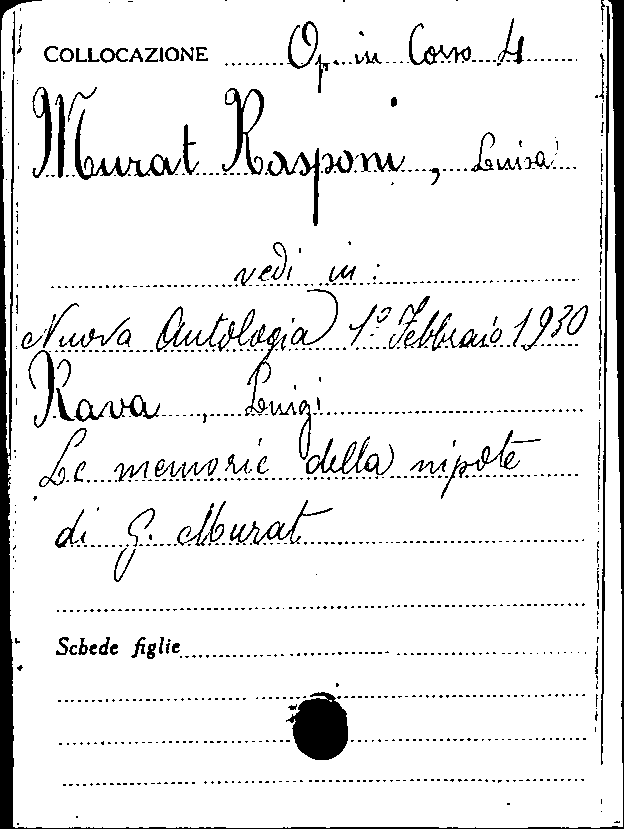 COLLOCAZIONE Op. in Corso 4
Murat Rasponi, Luisa
vedi in:
Nuova Antologia 1° Febbraio 1930
Rava, Luigi
Le memorie della nipote
di G. Murat
Schede figlie